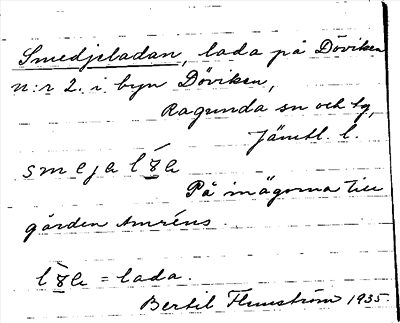 Smedjeladan, lada på Döviken
n:r 2. i byn Döviken,
Ragunda sn och tg,
Jämtl. l.
smeja
På inägorna till
gården Amréns.
= lada.
Bertil Flemström 1935.